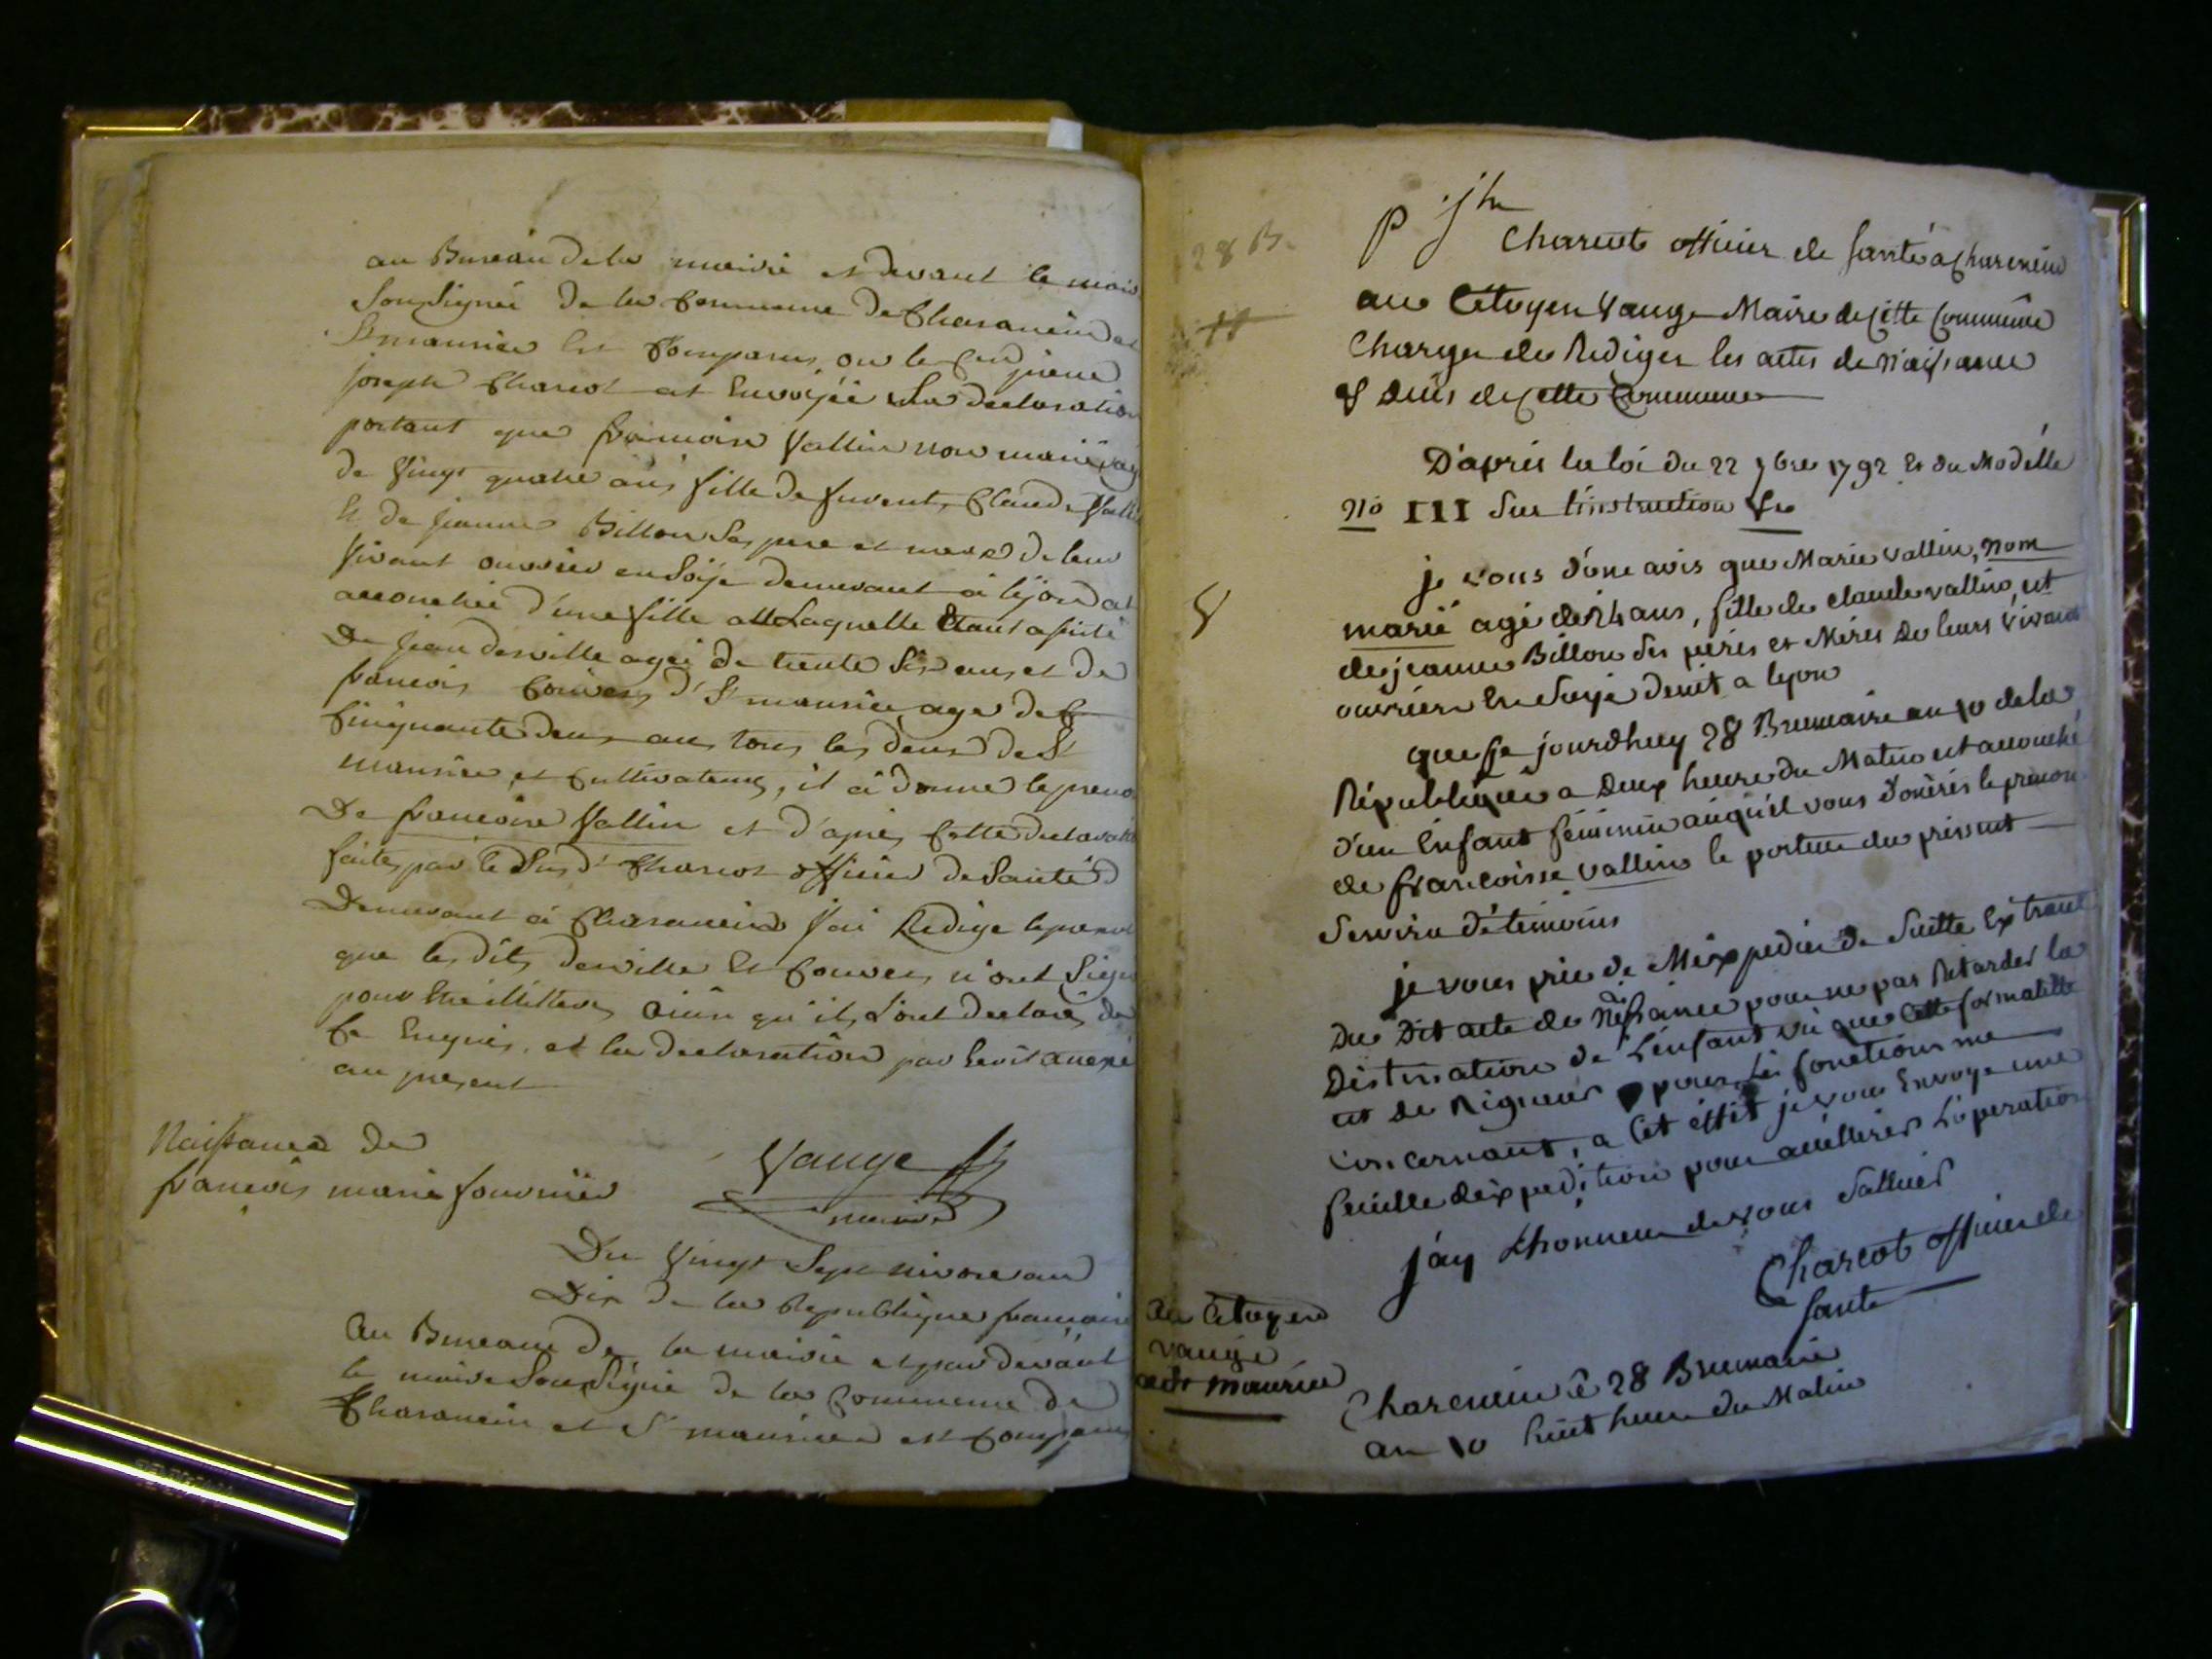 au Bureau de la mairie et devant le maire
Sousigné de la Commune de Charancin et
St maurice Est Comparu, ou le Cen pierre
joseph Charcot at Envoÿée Sa declaration
portant que francoise Vallin non marié agé
de Vingt quatre ans fille de fuvent Claude Vallin
Et de jeanne Billon Ses pere et mere de leur
Vivant ouvrier en Soÿe demeurant a lÿon at
accouchée d'une fille Laquelle Etant assisté
De jean derville agé de trente Six ans et de
francois Couvers d' St maurice age de C
Cinquante deux ans tous les deux de St
maurice et Cultivateurs, il a donné le prenom
De francoise Vallin et d'apres Cette declaration
faite par le Susd' Charcot officier de Santé
Demeurant a Charancin J'ai Redige le present
que les dits derville Et Couvers n'ont Signé
pour Etre illitteres Ainsi qu'ils L'ont declaré de
Ce Enquis. et la declaration par Ecrit anexé
au present
Naissance de
francois marie fournier
Vauge
maire
Du Vingt Sept nivose an
Dix de la Republique francaise
Au Bureau de la mairie et par devant
le maire Sousigné de la Commune de
Charancin et St maurice est Comparu
28 B.
P jh
Charcot officier de Santé a Charencin
au Citoyen Vauge Maire de Cette Commune
Charger de Rediger les actes de Naissance
& Deces de Cette Commune
D'apres la loi du 22 7bre 1792 Et du Modélle
No III Sur l'instruction &c
8
je vous done avis que Marie Vallin, nom
marié agé de 24 ans, fille de claude vallin, et
de jeanne Billon Ses péres et Méres De leurs Vivant
ouvriers En Soye a lyon
que Ce jourdhuy 28 Brumaire an 10 de la
République a Deux heure du Matin est accouché
d'un Enfant féminin auquel vous donérés le prenom
de françoisse vallin le porteur du présent
Servira de témoins
je vous prie de M'expedier de Suitte Extrait
Du Dit acte de Naissance pour ne pas Retarder la
Destination de L'enfant vu que Cette formalitte
est De Rigueur pour Les fonctions me
concernant, a Cet effet je vous Envoye une
feuille d'expedition pour accellerer L'operation
J'ay Lhonneur de vous Salluer
Charcot officier de
Santé
Au Citoyen
Vauge
a St Maurice
Charencin Ce 28 Brumaire
an 10 huit heure du Matin